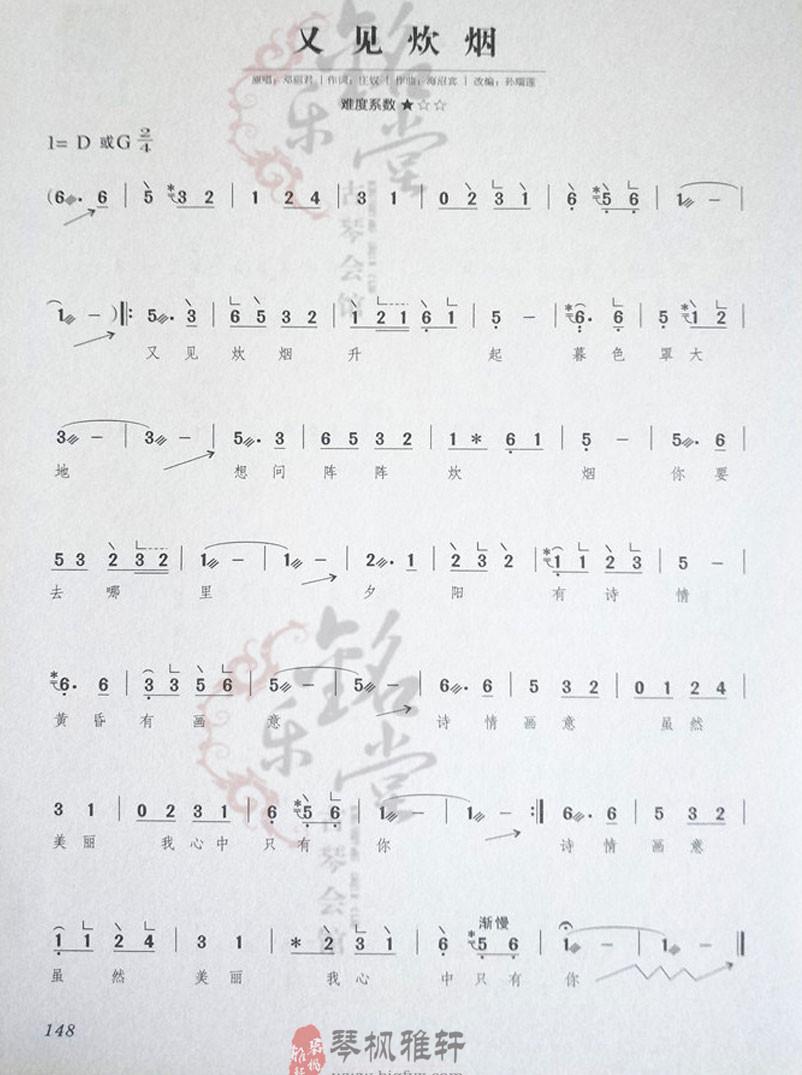 又见炊烟
原唱：邓丽君 | 作词：庄奴 | 作曲：海沼实 | 改编：孙瑞莲
难度系数★☆☆
1= D 或G 2/4
(6· 6 | 5 3 2 | 1 2 4 | 3 1 | 0 2 3 1 | 6 5 6 | 1 - |
1 - )‖: 5· 3 | 6 5 3 2 | 1 2 1 6 1 | 5 - | 6· 6 | 5 1 2 |
又 见 炊 烟 升 起 暮 色 罩 大
3 - | 3 - | 5· 3 | 6 5 3 2 | 1 * 6 1 | 5 - | 5· 6 |
地 想 问 阵 阵 炊 烟 你 要
5 3 2 3 2 | 1 - | 1 - | 2· 1 | 2 3 2 | 1 1 2 3 | 5 - |
去 哪 里 夕 阳 有 诗 情
6· 6 | 3 3 5 6 | 5 - | 5 - | 6· 6 | 5 3 2 | 0 1 2 4 |
黄 昏 有 画 意 诗 情 画 意 虽 然
3 1 | 0 2 3 1 | 6 5 6 | 1 - | 1 - :‖ 6· 6 | 5 3 2 |
美 丽 我 心 中 只 有 你 诗 情 画 意
渐慢
1 1 2 4 | 3 1 | * 2 3 1 | 6 5 6 | 1 - | 1 - ‖
虽 然 美 丽 我 心 中 只 有 你
148
琴枫雅轩
铭乐堂
古琴会馆
铭乐堂
古琴会馆